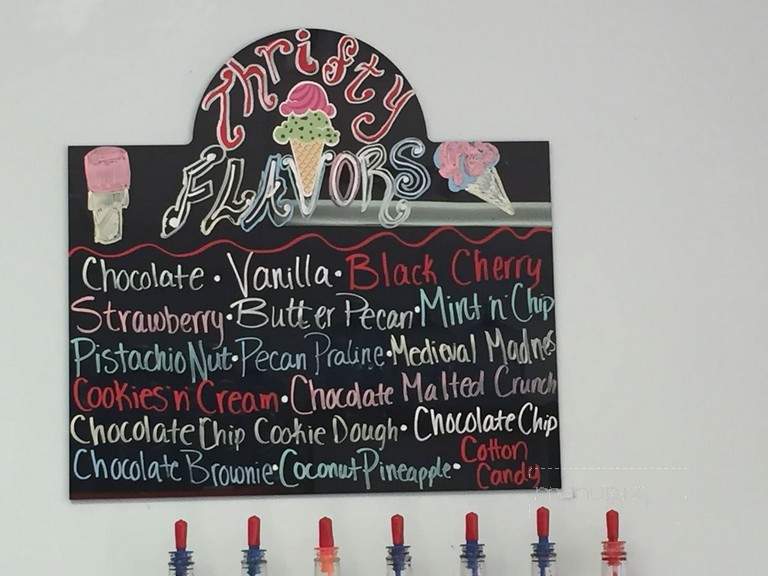 Thrifty
FLAVORS
Chocolate · Vanilla · Black Cherry
Strawberry · Butter Pecan · Mint n' Chip
Pistachio Nut · Pecan Praline · Medieval Madnes
Cookies 'n' Cream · Chocolate Malted Crunch
Chocolate Chip Cookie Dough · Chocolate Chip
Chocolate Brownie · Coconut Pineapple · Cotton
Candy